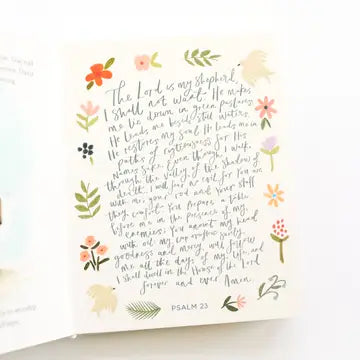 The Lord is my shepherd,
I shall not want. He makes
me lie down in green pastures,
He leads me beside still waters.
He restores my soul. He leads me in
paths of righteousness for His
Name's sake. Even though I walk
through the valley of the shadow of
death, I will fear no evil for You are
with me, your rod and Your staff
they comfort me. You prepare a table
before me in the presence of my
enemies; You anoint my head
with oil my cup overflows. Surely
goodness and mercy will follow
me all the days of my life, and
I shall dwell in the House of the Lord
forever and ever. Amen.
PSALM 23